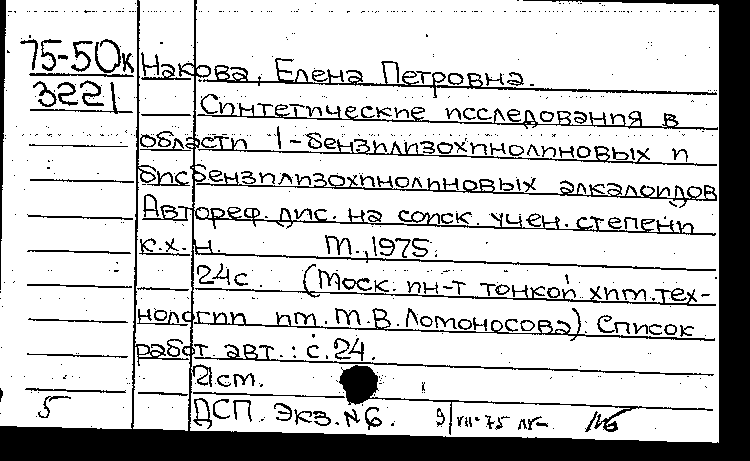 75-50к Накова, Елена Петровна.
3221
Синтетические исследования в
области 1-бензилизохинолиновых и
бисбензилизохинолиновых алкалоидов
Автореф. дис. на соиск. учен. степени
к.х.н. М., 1975.
24с. (Моск. ин-т тонкой хим. тех-
нологии им. М.В. Ломоносова). Список
работ авт.: с. 24.
21см.
5 ДСП. Экз. №6. 9/VII-75